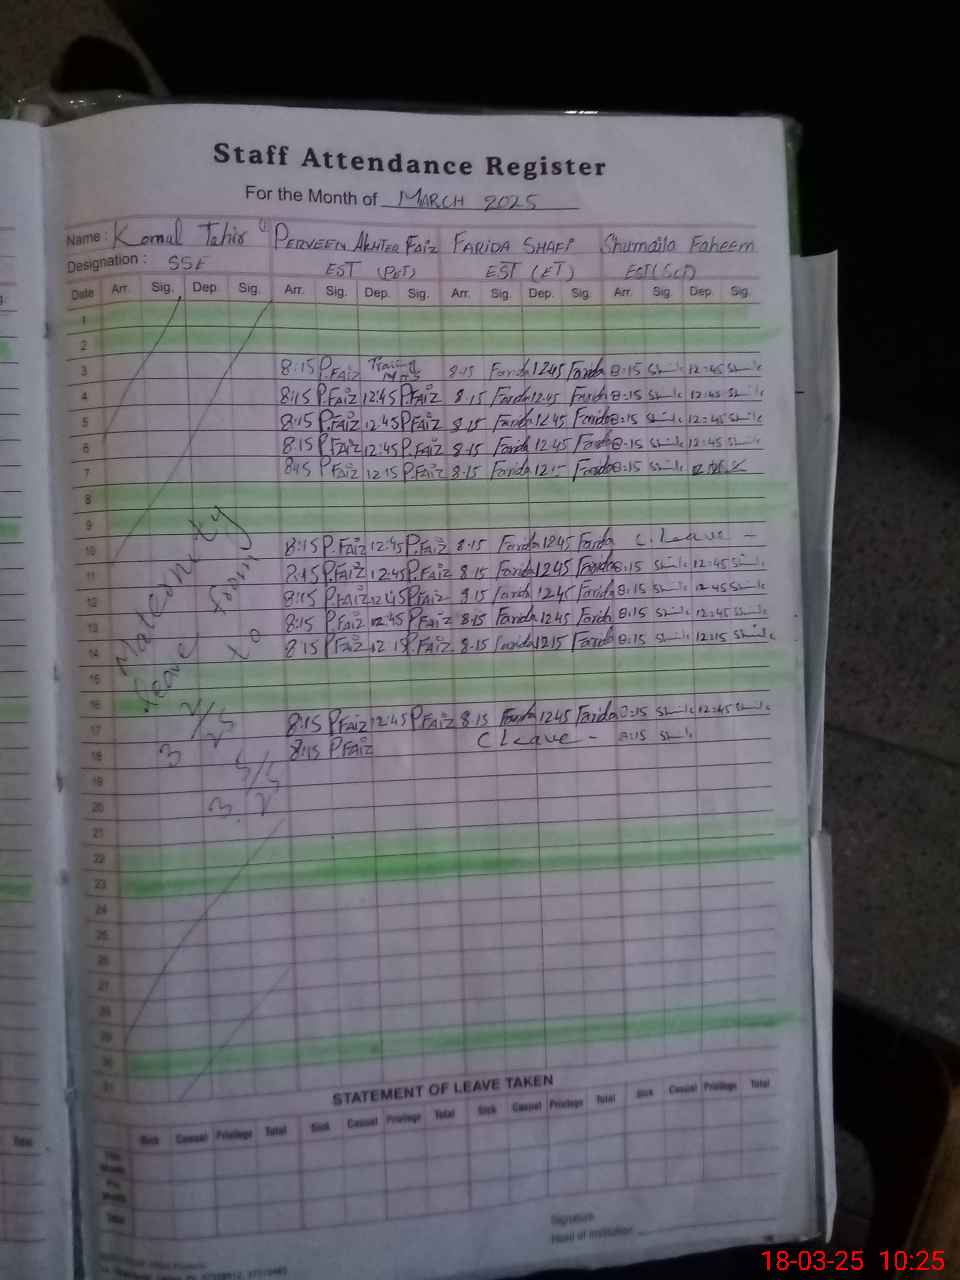 Staff Attendance Register
For the Month of MARCH 2025
Name : Komal Tahir PERVEEN AKHTER FAIZ FARIDA SHAFI Shumaila Faheem
Designation : SSE EST (PET) EST (ET) EST (Sci)
Date Arr. Sig. Dep. Sig. Arr. Sig. Dep. Sig. Arr. Sig. Dep. Sig. Arr. Sig. Dep. Sig.
1
2
3 8:15 P.FAiZ 8-15 Farida 12.45 Farida 8:15 12:45
4 8:15 P.FAiZ 12:45 P.FAiZ 8-15 Farida 12.45 Farida 8:15 12:45
5 8:15 P.FAiZ 12:45 P.FAiZ 8-15 Farida 12.45 Farida 8:15 12:45
6 8:15 P.FAiZ 12:45 P.FAiZ 8-15 Farida 12.45 Farida 8:15 12:45
7 8:15 P.FAiZ 12:15 P.FAiZ 8-15 Farida Farida 8:15
8
9
10 8:15 P.FAiZ 12:45 P.FAiZ 8-15 Farida 12.45 Farida C. Leave -
11 8:15 P.FAiZ 12:45 P.FAiZ 8-15 Farida 12.45 Farida 8:15 12:45
12 8:15 P.FAiZ 12:45 P.FAiZ 8-15 Farida 12.45 Farida 8:15 12:45
13 8:15 P.FAiZ 12:45 P.FAiZ 8-15 Farida 12.45 Farida 8:15 12:45
14 8:15 P.FAiZ 12:15 P.FAiZ 8-15 Farida 12.15 Farida 8:15 12:15
15
16
17 8:15 P.FAiZ 12:45 P.FAiZ 8-15 Farida 12.45 Farida 8:15 12:45
18 8:15 P.FAiZ C Leave - 8:15
19
20
21
22
23
24
25
26
27
28
29
30
31
Maternity
leave from
to
STATEMENT OF LEAVE TAKEN
Sick Casual Privilege Total Sick Casual Privilege Total Sick Casual Privilege Total Sick Casual Privilege Total
Total
Signature
Head of Institution
18-03-25 10:25